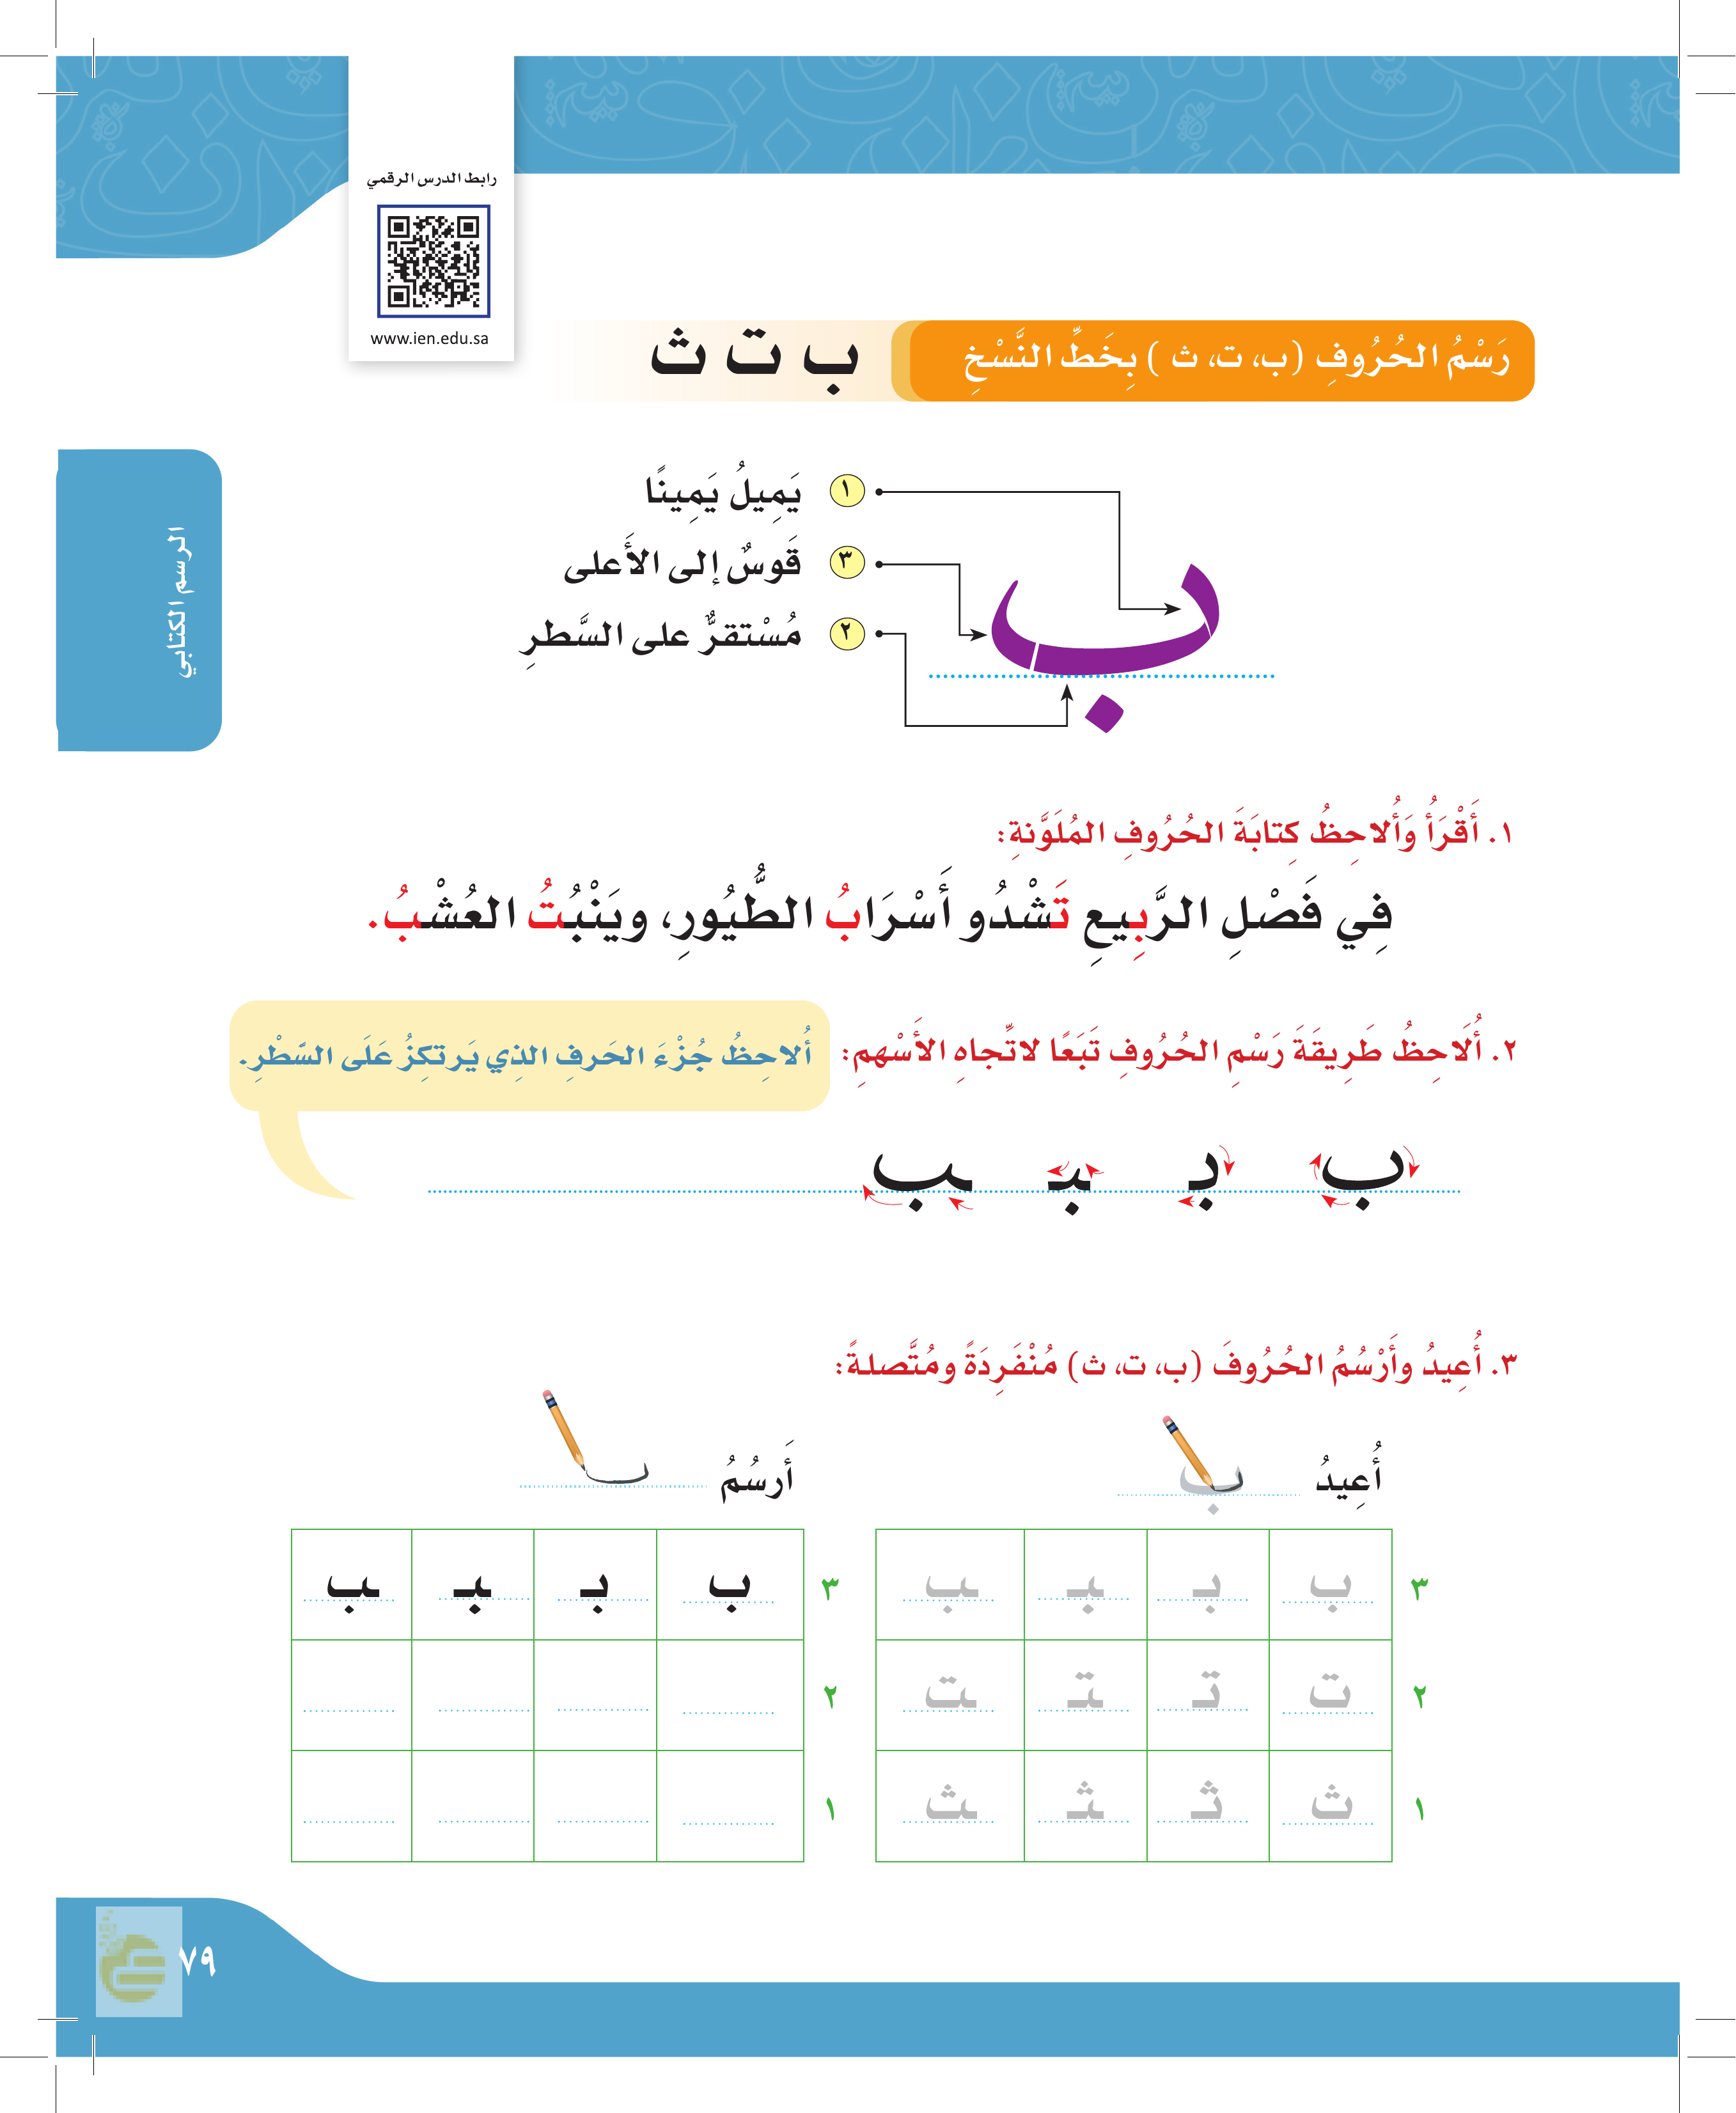 رابط الدرس الرقمي
www.ien.edu.sa
رَسْمُ الحُرُوفِ (ب، ت، ث ) بِخَطِّ النَّسْخِ
ب ت ث
١ يَمِيلُ يَمِينًا
٣ قَوسٌ إلى الأَعلى
٢ مُسْتقرٌّ على السَّطرِ
ب
الرسم الكتابي
١. أَقْرَأُ وَأُلاحِظُ كِتابَةَ الحُرُوفِ المُلَوَّنةِ:
فِي فَصْلِ الرَّبِيعِ تَشْدُو أَسْرَابُ الطُّيُورِ، ويَنْبُتُ العُشْبُ.
٢. أُلَاحِظُ طَرِيقَةَ رَسْمِ الحُرُوفِ تَبَعًا لاتِّجاهِ الأَسْهمِ:
أُلاحِظُ جُزْءَ الحَرفِ الذِي يَرتكِزُ عَلَى السَّطْرِ.
ب بـ ـبـ ـب
٣. أُعِيدُ وأَرْسُمُ الحُرُوفَ (ب، ت، ث) مُنْفَرِدَةً ومُتَّصلةً:
أُعِيدُ ب
أَرسُمُ
٣ ب بـ ـبـ ـب
٢ ت تـ ـتـ ـت
١ ث ثـ ـثـ ـث
٣ ب بـ ـبـ ـب
٢
١
٧٩